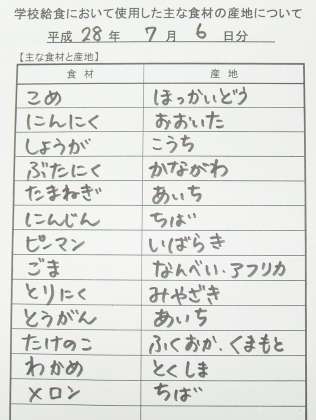 学校給食において使用した主な食材の産地について
平成 28 年 7 月 6 日分
【主な食材と産地】
食材 産地
こめ ほっかいどう
にんにく おおいた
しょうが こうち
ぶたにく かながわ
たまねぎ あいち
にんじん ちば
ピーマン いばらき
ごま なんべい・アフリカ
とりにく みやざき
とうがん あいち
たけのこ ふくおか、くまもと
わかめ とくしま
メロン ちば